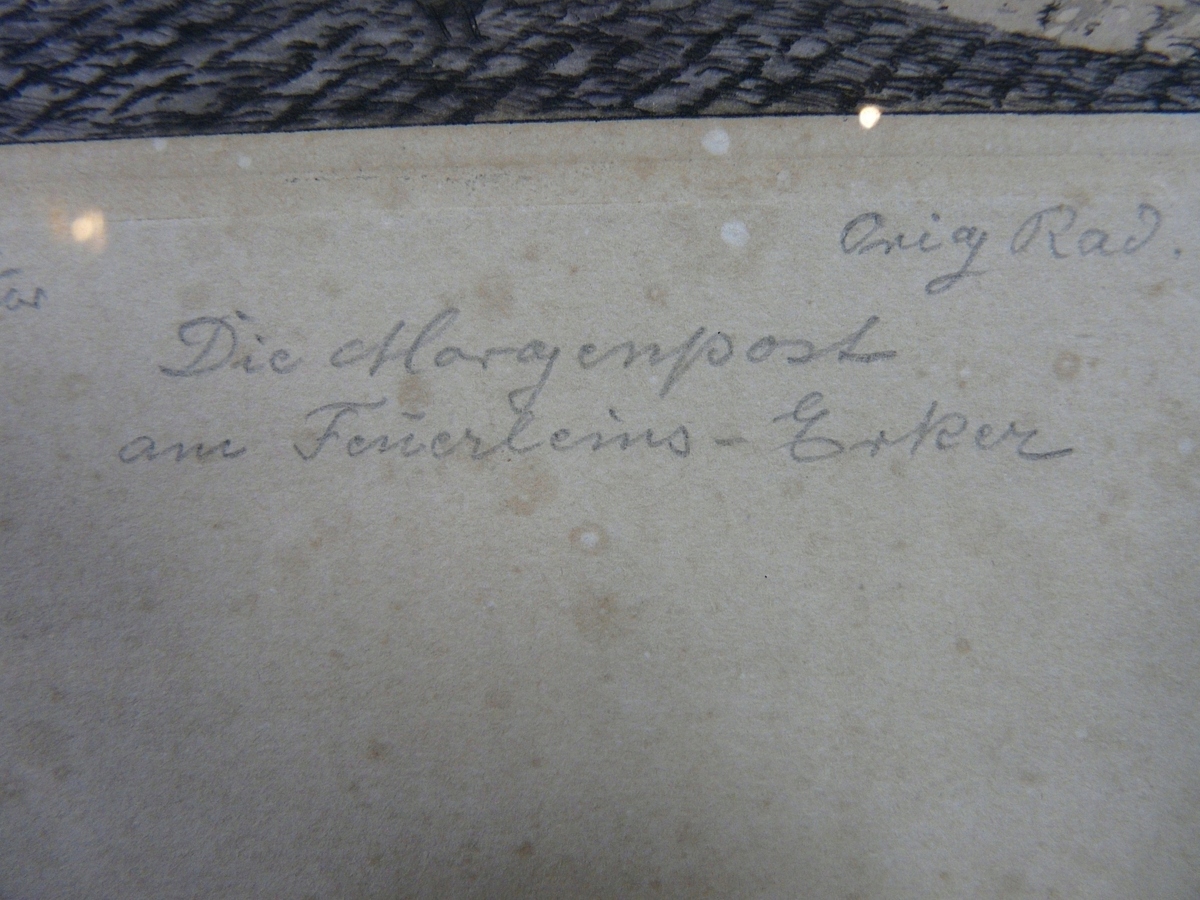 Orig Rad.
Die Morgenpost
am Feuerleins - Erker